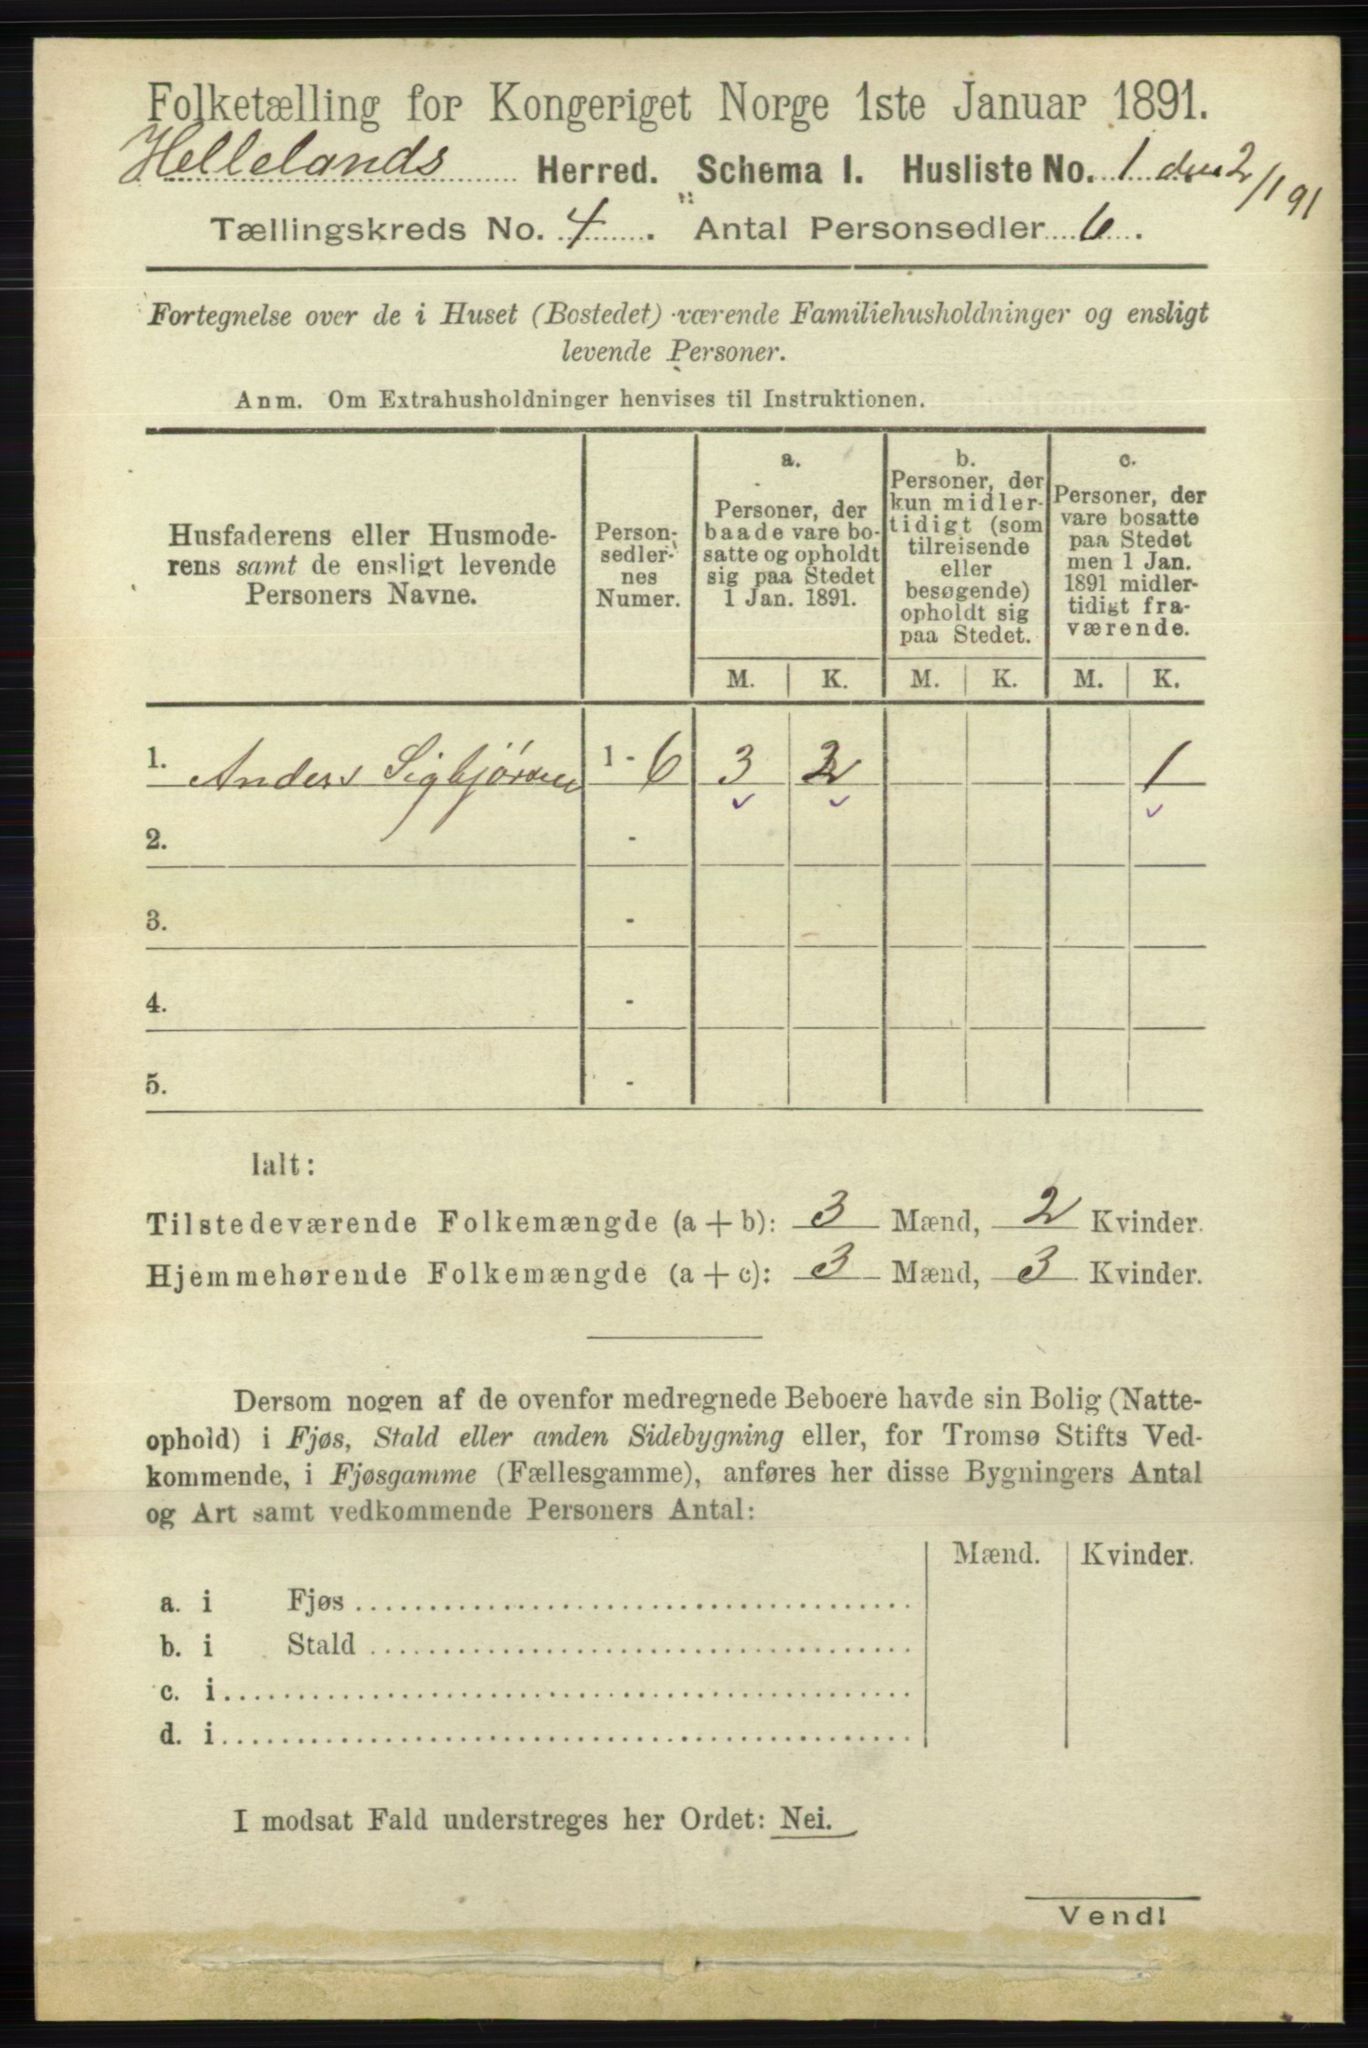 Folketælling for Kongeriget Norge 1ste Januar 1891.
Hellelands Herred. Schema I. Husliste No. 1 den 2/1 91
Tællingskreds No. 4. Antal Personsedler 6.
Fortegnelse over de i Huset (Bostedet) værende Familiehusholdninger og ensligt
levende Personer.
Anm. Om Extrahusholdninger henvises til Instruktionen.
Husfaderens eller Husmode-
rens samt de ensligt levende
Personers Navne.
Person-
sedler-
nes
Numer.
a.
Personer, der
baade vare bo-
satte og opholdt
sig paa Stedet
1 Jan. 1891.
b.
Personer, der
kun midler-
tidigt (som
tilreisende
eller
besøgende)
opholdt sig
paa Stedet.
c.
Personer, der
vare bosatte
paa Stedet
men 1 Jan.
1891 midler-
tidigt fra-
værende.
M. K. M. K. M. K.
1. Anders Sigbjørsen 1 - 6 3 2 1
2. -
3. -
4. -
5. -
Ialt:
Tilstedeværende Folkemængde (a + b): 3 Mænd, 2 Kvinder.
Hjemmehørende Folkemængde (a + c): 3 Mænd, 3 Kvinder.
Dersom nogen af de ovenfor medregnede Beboere havde sin Bolig (Natte-
ophold) i Fjøs, Stald eller anden Sidebygning eller, for Tromsø Stifts Ved-
kommende, i Fjøsgamme (Fællesgamme), anføres her disse Bygningers Antal
og Art samt vedkommende Personers Antal:
Mænd. Kvinder.
a. i Fjøs
b. i Stald
c. i
d. i
I modsat Fald understreges her Ordet: Nei.
Vend!